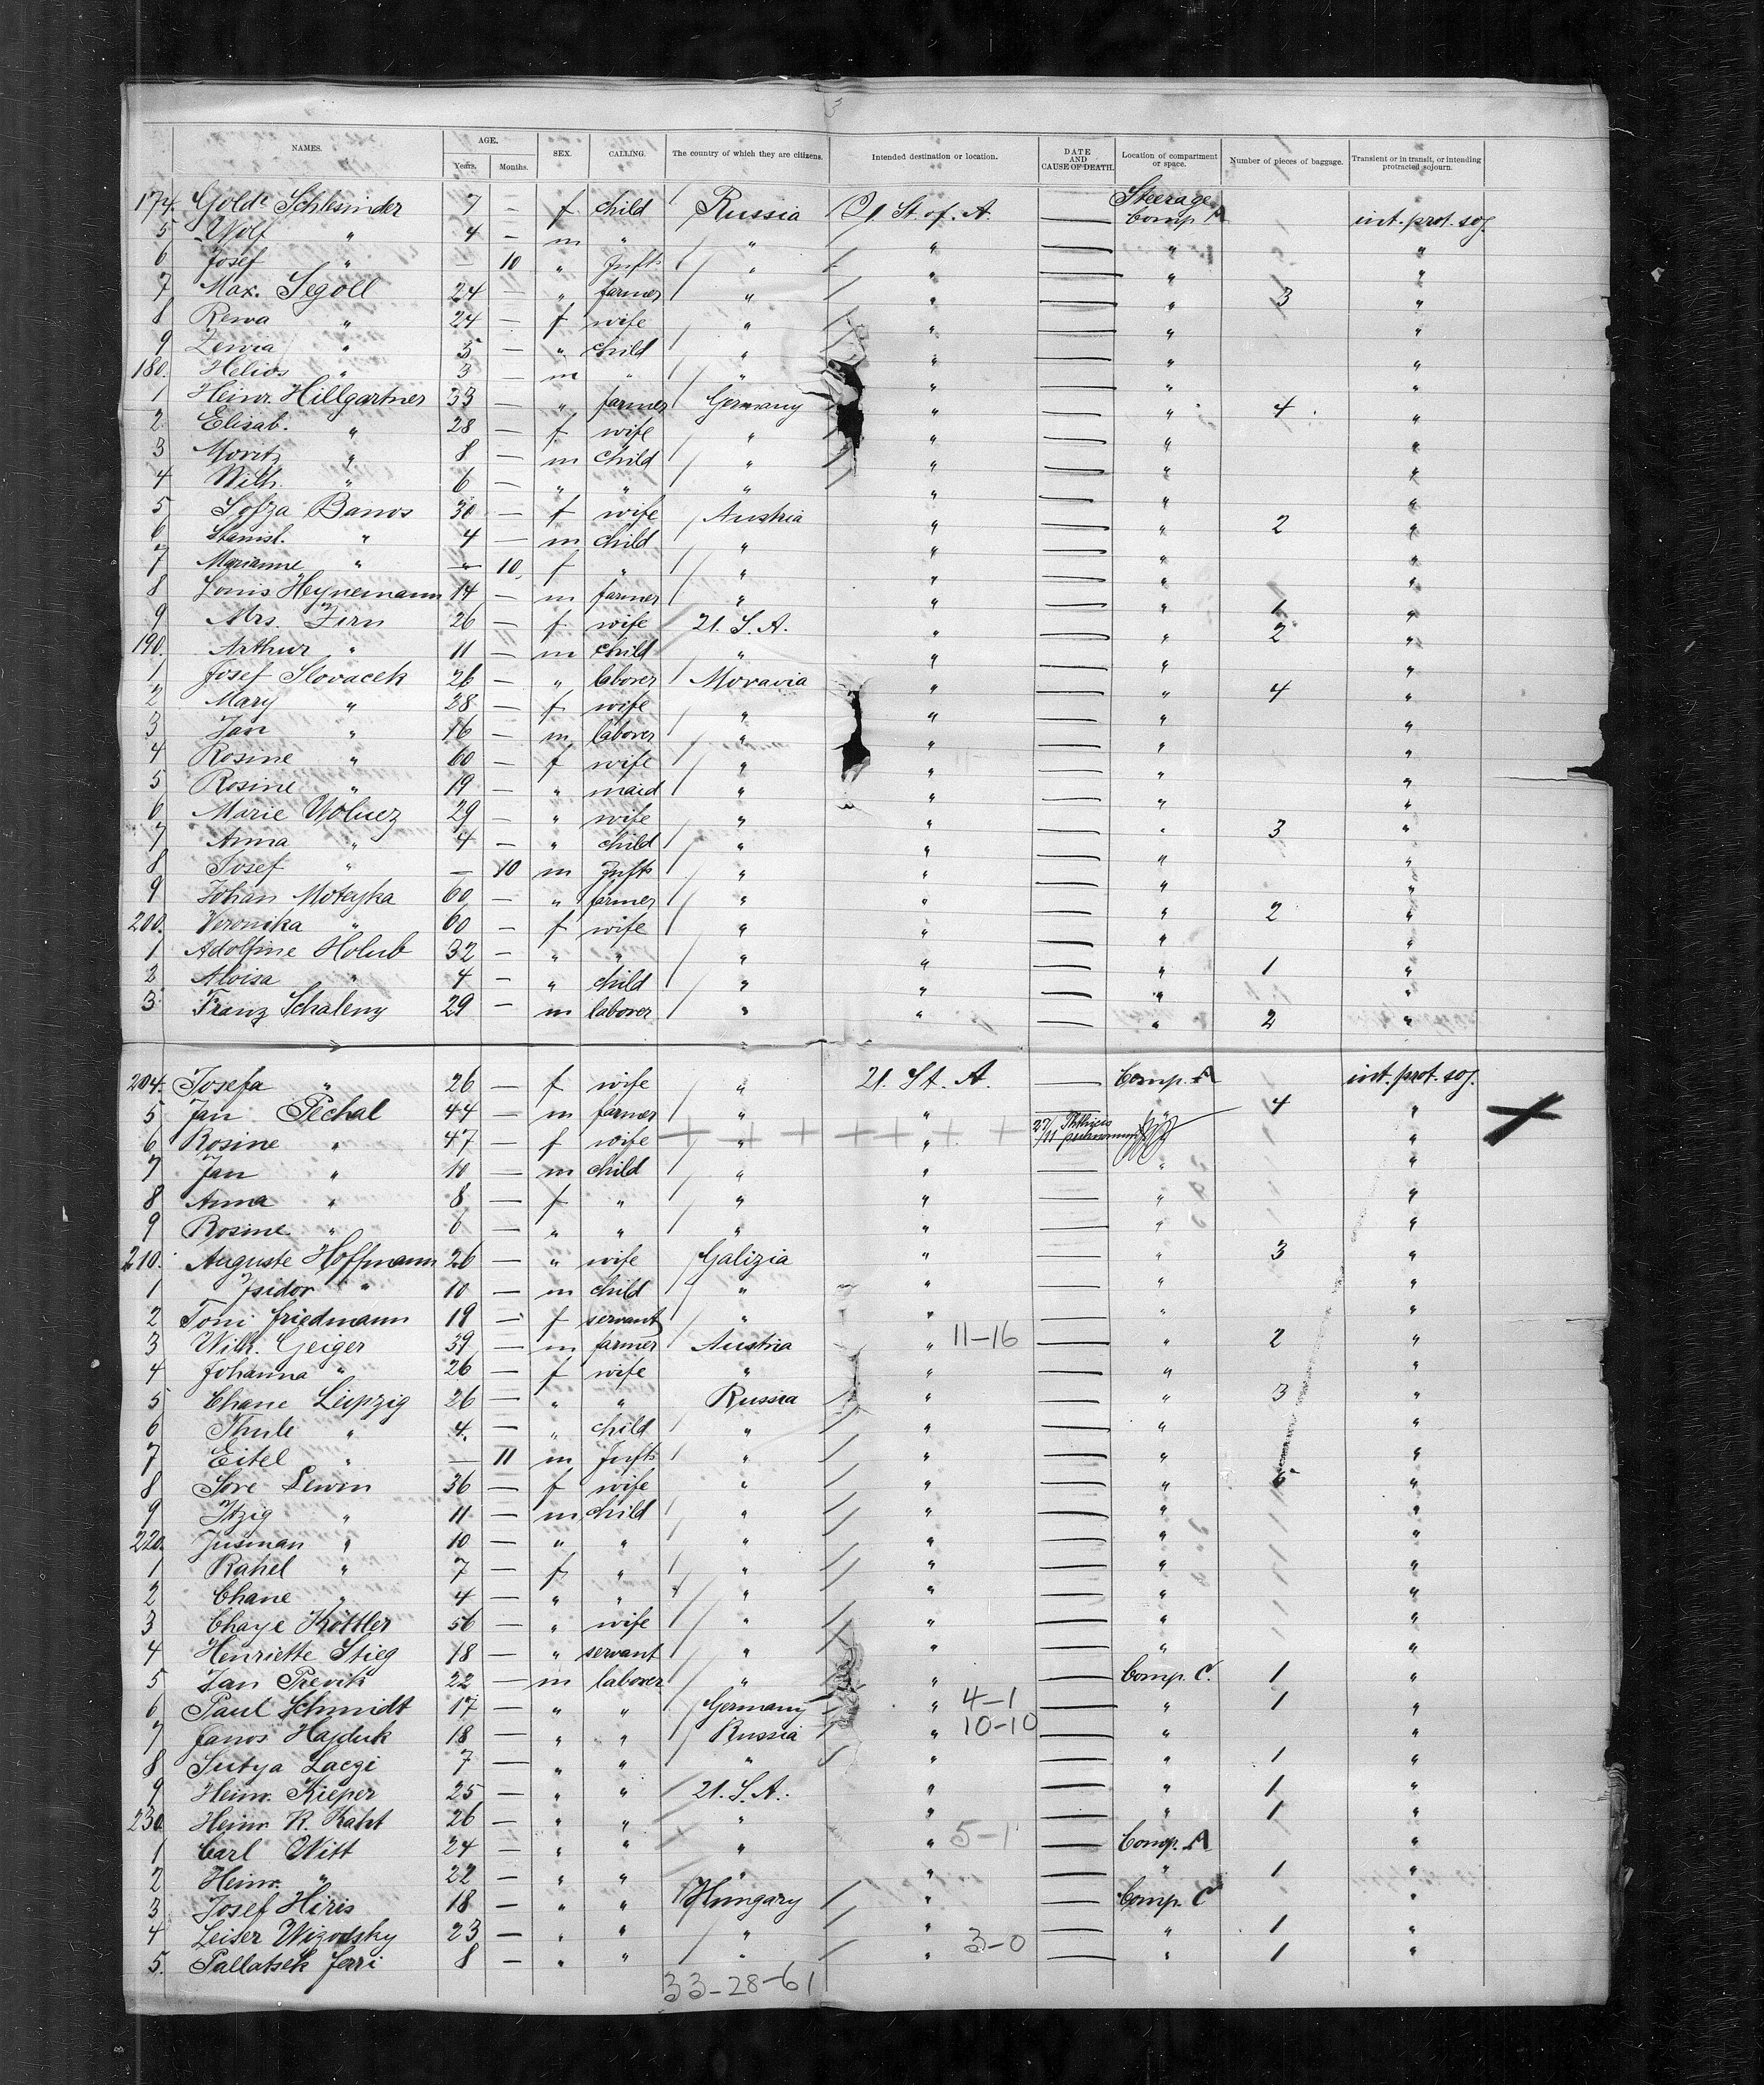 3
NAMES. AGE. Years. Months. SEX. CALLING. The country of which they are citizens. Intended destination or location. DATE AND CAUSE OF DEATH. Location of compartment or space. Number of pieces of baggage. Transient or in transit, or intending protracted sojourn.
174. Golde Schlesinder 7 — f child Russia U. St. of. A. — Steerage Comp. A int. prot. soj.
5 Wolf " 4 — m " " " — " "
6 Josef " — 10 " Inft " " — " "
7 Max. Segoll 24 — " farmer " " — " 3 "
8 Rewa " 24 — f wife " " — " "
9 " 5 — " child " " — " "
180. Helios " 3 — m " " " — " "
1 Heinr. Hillgartner 33 — " farmer Germany " — " 4 "
2 Elisab. " 28 — f wife " " — " "
3 Moritz " 8 — m child " " — " "
4 Wilh. " 6 — " " " " — " "
5 Banos 30 — f wife Austria " — " 2 "
6 Stanisl. " 4 — m child " " — " "
7 Marianne " — 10 f " " " — " "
8 Louis Heynemann 14 — m farmer " " — " 1 "
9 Mrs. Zirn 26 — f wife U. S. A. " — " 2 "
190. Arthur " 11 — m child " " — " "
1 Josef Slovacek 26 — " laborer Moravia " — " 4 "
2 Mary " 28 — f wife " " — " "
3 Jan " 16 — m laborer " " — " "
4 Rosine " 60 — f wife " " — " "
5 Rosine " 19 — " maid " " — " "
6 Marie 29 — " wife " " — " 3 "
7 Anna " 4 — " child " " — " "
8 Josef " — 10 m Inft " " — " "
9 Johan Moteyka 60 — " farmer " " — " 2 "
200. Veronika " 60 — f wife " " — " "
1 Adolfine Holub 32 — " " " " — " 1 "
2 Aloisa " 4 — " child " " — " "
3 Franz Schaleny 29 — m laborer " " — " 2 "
204. Josefa " 26 — f wife " U. St. A. — Comp. A int. prot. soj.
5 Jan Pechal 44 — m farmer " " — " 4 "
6 Rosine " 47 — f wife " " 27/11 Phthisis "
7 Jan " 10 — m child " " — " "
8 Anna " 8 — f " " " — " "
9 Rosine " 6 — " " " " — " "
210. Auguste Hoffmann 26 — " wife Galizia " — " 3 "
1 Isidor " 10 — m child " " — " "
2 Toni Friedmann 18 — f servant " " — " "
3 Wilh. Geiger 39 — m farmer Austria " 11-16 — " 2 "
4 Johanna " 26 — f wife " " — " "
5 Chane Leipzig 26 — " " Russia " — " 3 "
6 Thule " 4. — " child " " — " "
7 Eitel " — 11 m Inft " " — " "
8 Sore Lewin 36 — f wife " " — " "
9 Itzig " 11 — m child " " — " "
220. " 10 — " " " " — " "
1 Rahel " 7 — f " " " — " "
2 Chane " 4 — " " " " — " "
3 Chaye Köttler 56 — " wife " " — " "
4 Henriette Stieg 18 — " servant " " — " "
5 Jan 22 — m laborer " " — Comp. C. 1 "
6 Paul Schmidt 17 — " " Germany " 4-1 — " 1 "
7 Janos Hajduk 18 — " " Russia " 10-10 — " "
8 Sutya Laczi 7 — " " " " — " 1 "
9 Heinr. Kieper 25 — " " U. S. A. " — " 1 "
230. Heinr. R. Kaht 26 — " " " " — " 1 "
1 Carl Witt 24 — " " " " 5-1 — Comp. A "
2 Heinr. " 22 — " " " " — " 1 "
3 Josef Hiris 18 — " " Hungary " — Comp. C "
4 Leiser Wigodsky 23 — " " " " — " 1 "
5. Pallatsek Ferri 8 — " " " " 3-0 — " 1 "
33-28-61